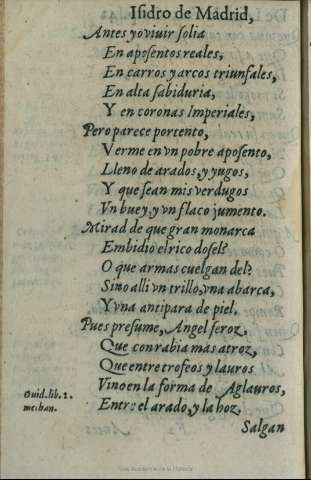 Isidro de Madrid,
Antes yo viuir solia
En aposentos reales,
En carros y arcos triunfales,
En alta sabiduria,
Y en coronas Imperiales,
Pero parece portento,
Verme en vn pobre aposento,
Lleno de arados, y yugos,
Y que sean mis verdugos
Vn buey, y vn flaco jumento.
Mirad de que gran monarca
Embidio el rico dosel?
O que armas cuelgan del?
Sino alli vn trillo, vna abarca,
Y vna antipara de piel.
Pues presume, Angel feroz,
Que con rabia mas atroz,
Que entre trofeos y lauros
Ouid. lib. 2.
Vino en la forma de Aglauros,
methan.
Entre el arado, y la hoz.
Salgan
Real Academia de la Historia